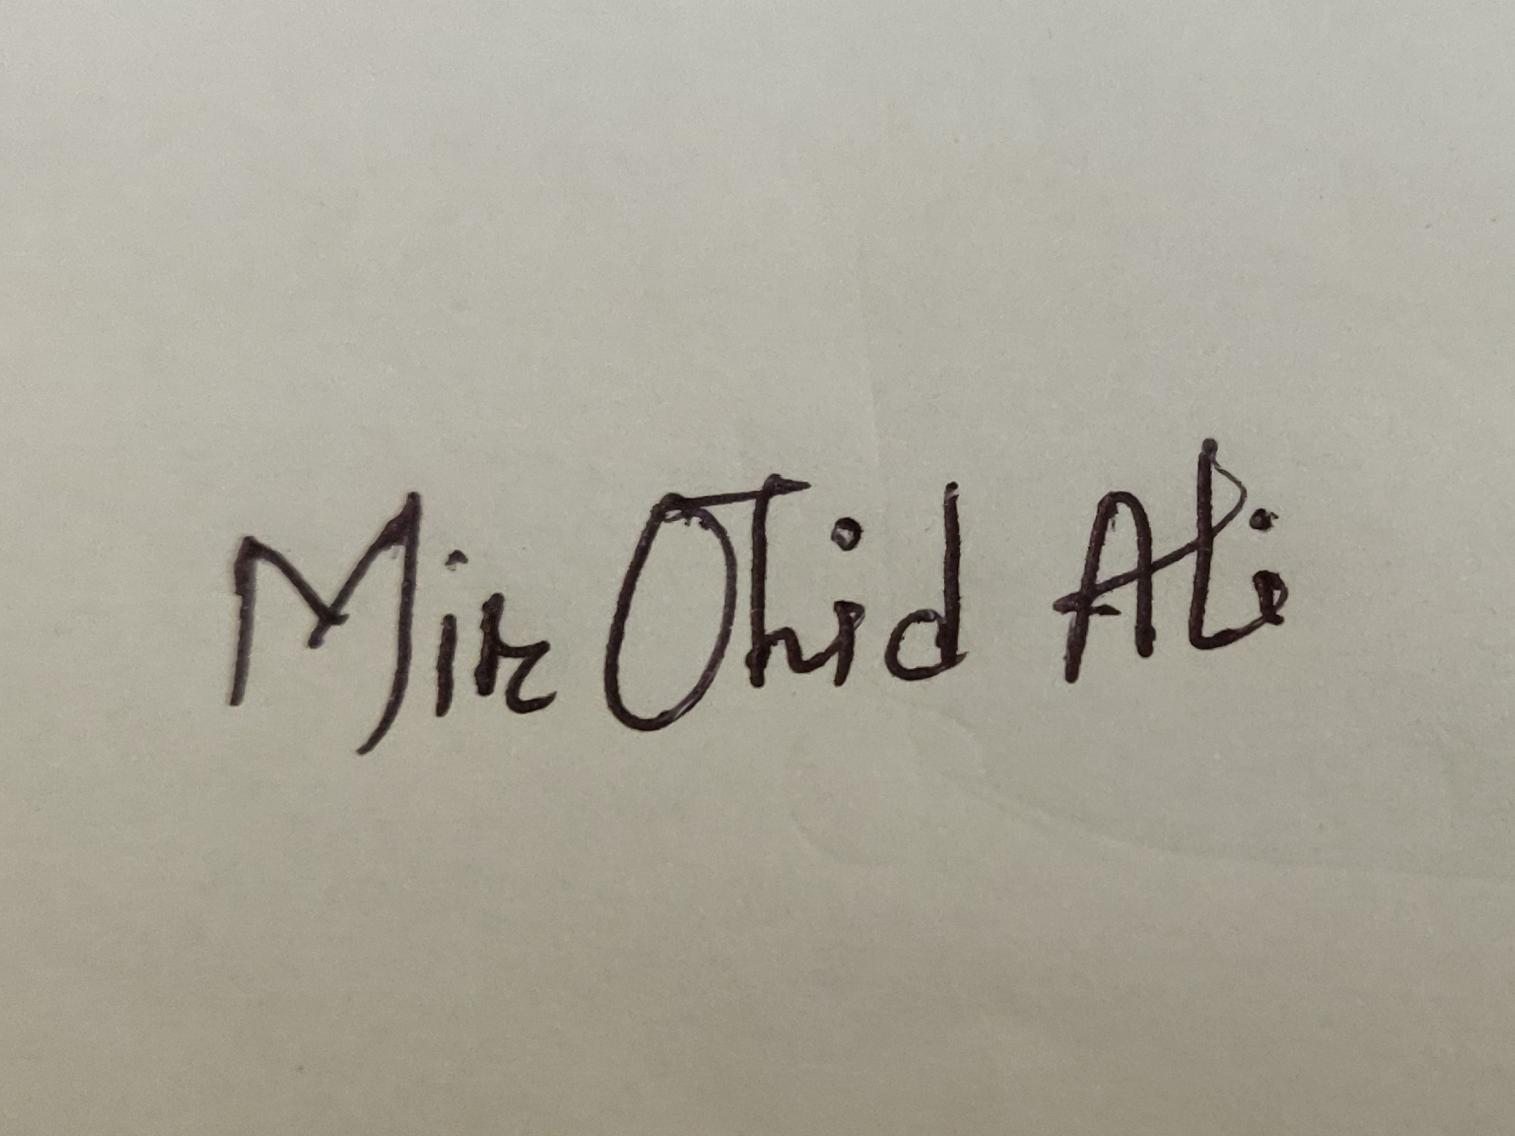 Mir Ohid Ali